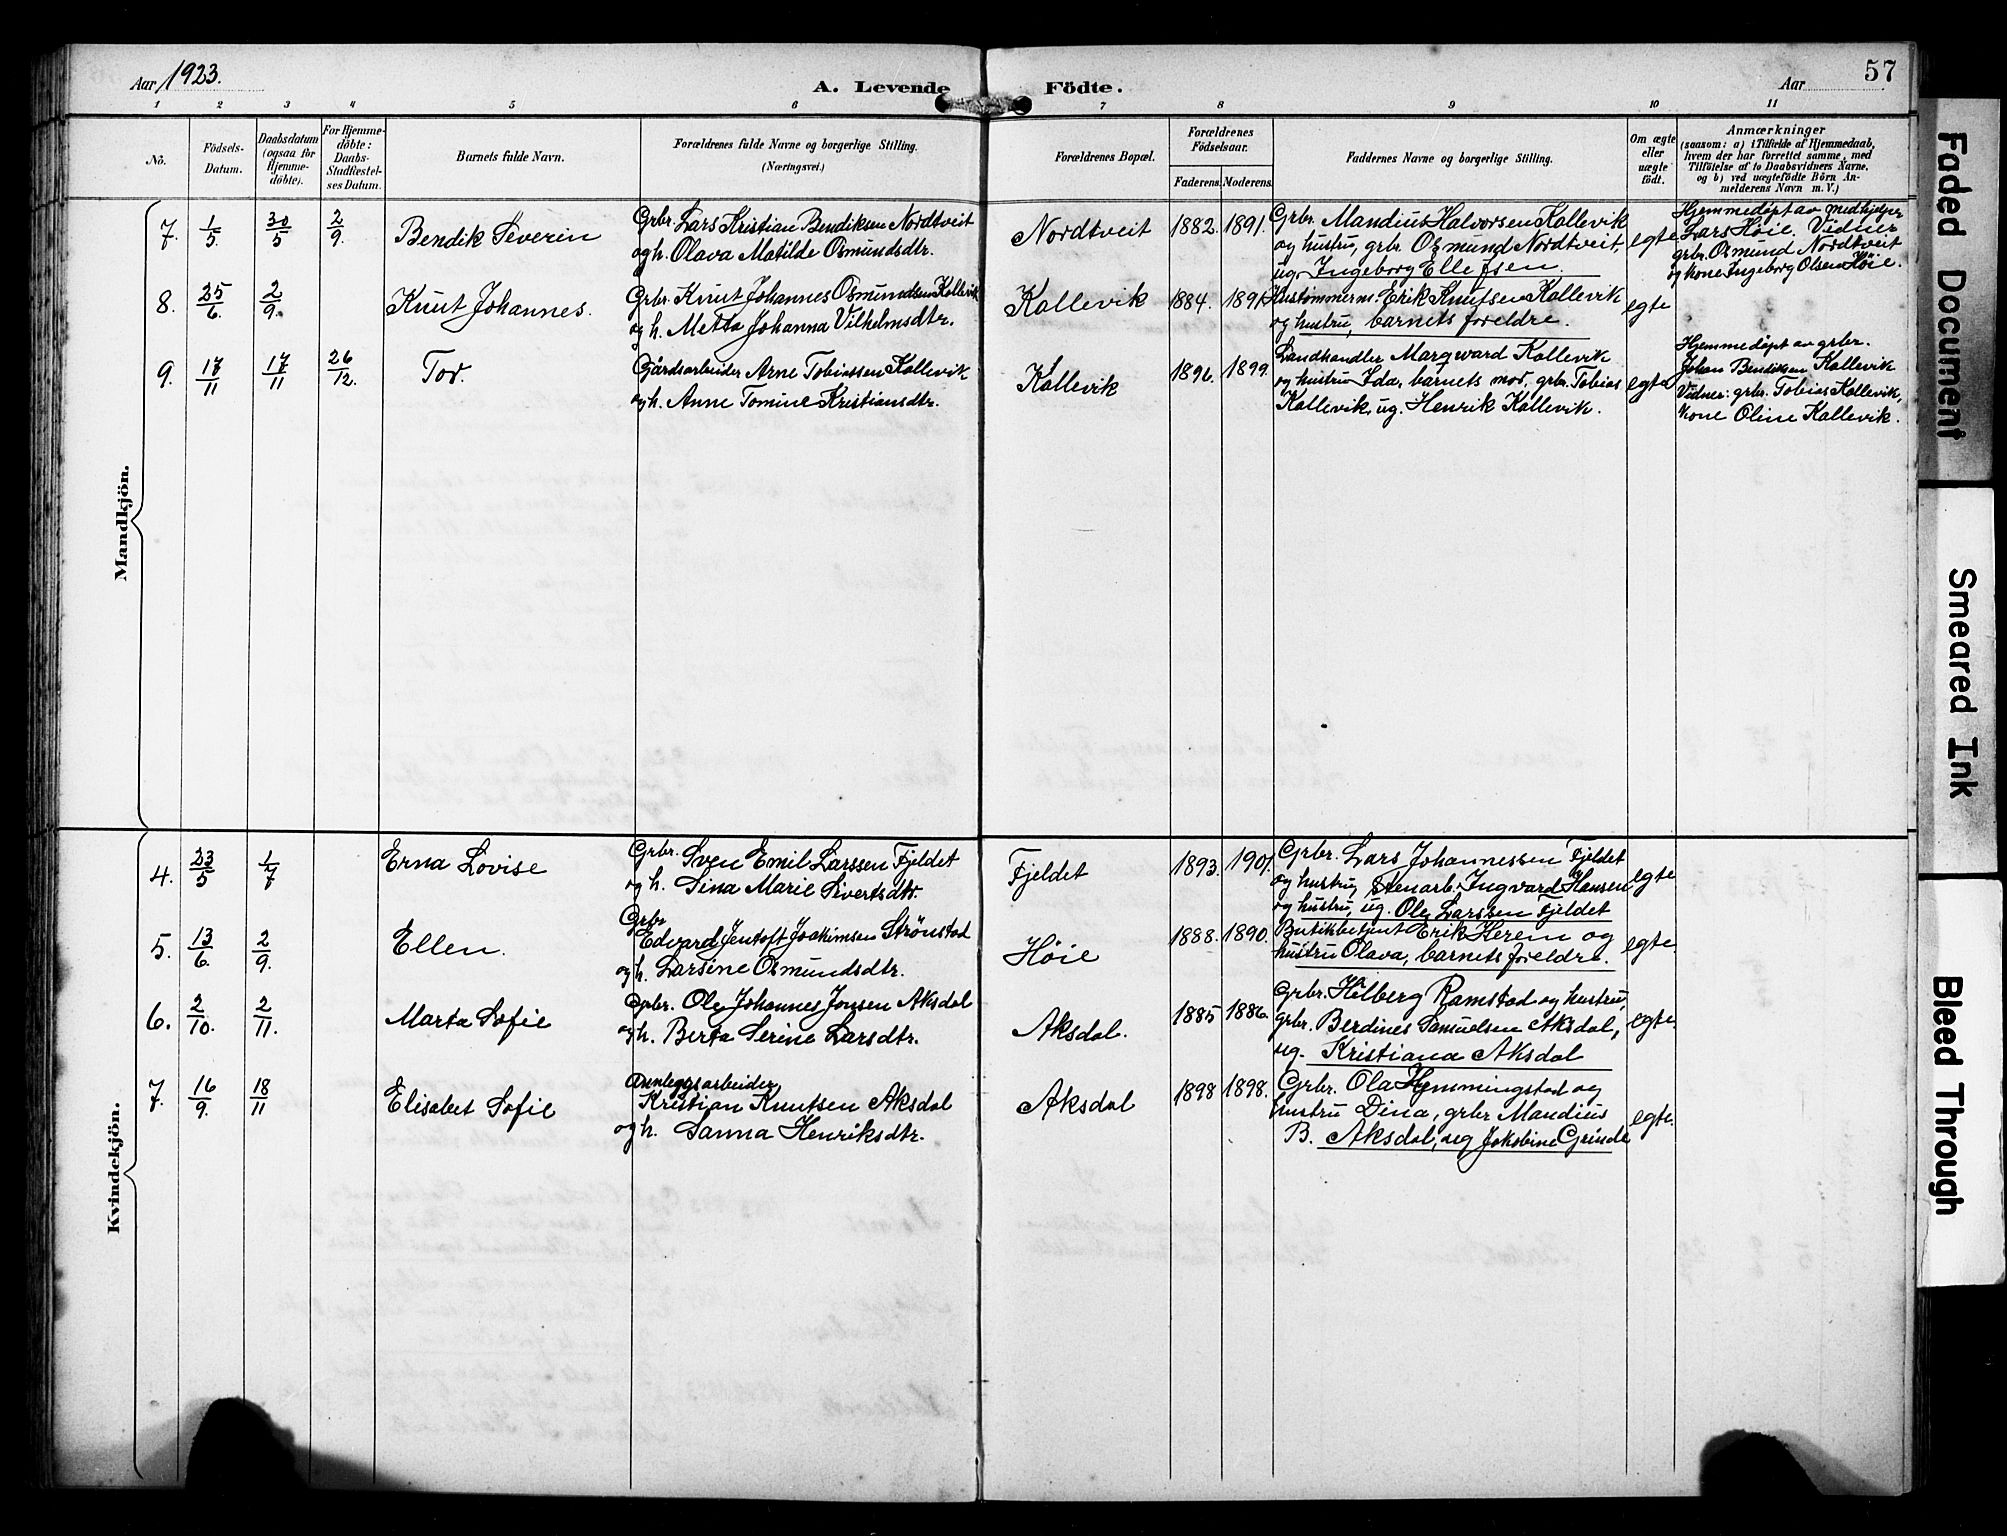 Aar 1923.
A. Levende Födte.
Aar
57
1 2 3 4 5 6 7 8 9 10 11
No.
Födsels-
Datum.
Daabsdatum
(ogsaa for
Hjemme-
döbte).
For Hjemme-
döbte:
Daabs-
Stadfæstel-
ses Datum.
Barnets fulde Navn.
Forældrenes fulde Navne og borgerlige Stilling.
(Næringsvei.)
Forældrenes Bopæl.
Forældrenes
Födselsaar.
Faderens. Moderens.
Faddernes Navne og borgerlige Stilling.
Om ægte
eller
uægte
födt.
Anmærkninger
(saasom: a) i Tilfælde af Hjemmedaab,
hvem der har forrettet samme, med
Tilföielse af to Daabsvidners Navne,
og b) ved uægtefödte Börn An-
melderens Navn m. V.)
Mandkjön.
7. 1/5 30/5 2/9. Bendik Severin
Grbr. Lars Kristian Bendiksen Nordtveit
og h. Olava Matilde Osmundsdtr.
Nordtveit 1882. 1891.
Grbr. Mandius Halvorsen Kallevik
og hustru, grbr. Osmund Nordtveit,
ug. Ingeborg Ellefsen.
egte
Hjemmedøpt av medhjelper
Lars Høie. Vidner
grbr. Osmund Nordtveit
og kone Ingeborg Olsen Høie.
8. 25/6 2/9. Knut Johannes.
Grbr. Knut Johannes Osmundsen Kallevik
og h. Metta Johanna Vilhelmsdtr.
Kallevik 1884. 1891
Hustømmerm. Erik Knutsen Kallevik
og hustru, barnets foreldre.
egte
9. 17/11 17/11 26/12. Tor.
Gårdsarbeider Arne Tobiassen Kallevik
og h. Anne Tomine Kristiansdtr.
Kallevik 1896. 1899.
Landhandler Marqward Kallevik
og hustru Ida, barnets mor, grbr. Tobias
Kallevik, ug. Henrik Kallevik.
egte
Hjemmedøpt av grbr.
Johan Bendiksen Kallevik
Vidner: grbr. Tobias Kallevik,
kone Oline Kallevik.
Kvindekjön.
4. 23/5 1/7 Erna Lovise
Grbr. Sven Emil Larssen Fjeldet
og h. Sina Marie Sivertsdtr.
Fjeldet 1893. 1901.
Grbr. Lars Johannessen Fjeldet
og hustru, stenarb. Ingvard Hansen
og hustru, ug. Ole Larssen Fjeldet
egte
5. 13/6. 2/9. Ellen.
Grbr
Edvard Jentoft Joakimsen Strønstad
og h. Larsine Osmundsdtr.
Høie 1888. 1890.
Butikbetjent Erik Herem og
hustru Olava, barnets foreldre.
egte.
6. 2/10. 2/11. Marta Sofie
Grbr. Ole Johannes Jonsen Aksdal
og h. Berta Serine Larsdtr.
Aksdal. 1885 1886.
Grbr. Hilberg Ramstad og hustru,
grbr. Berdines Samuelsen Aksdal,
ug. Kristiana Aksdal
egte
7. 16/9. 18/11 Elisabet Sofie
Anleggsarbeider,
Kristian Knutsen Aksdal
og h. Sanna Henriksdtr.
Aksdal 1898 1898.
Grbr. Ola Hemmingstad og
hustru Dina, grbr Mandius
B. Aksdal, ug Jakobine Grinde
egte.
Faded Document
Smeared Ink
Bleed Through